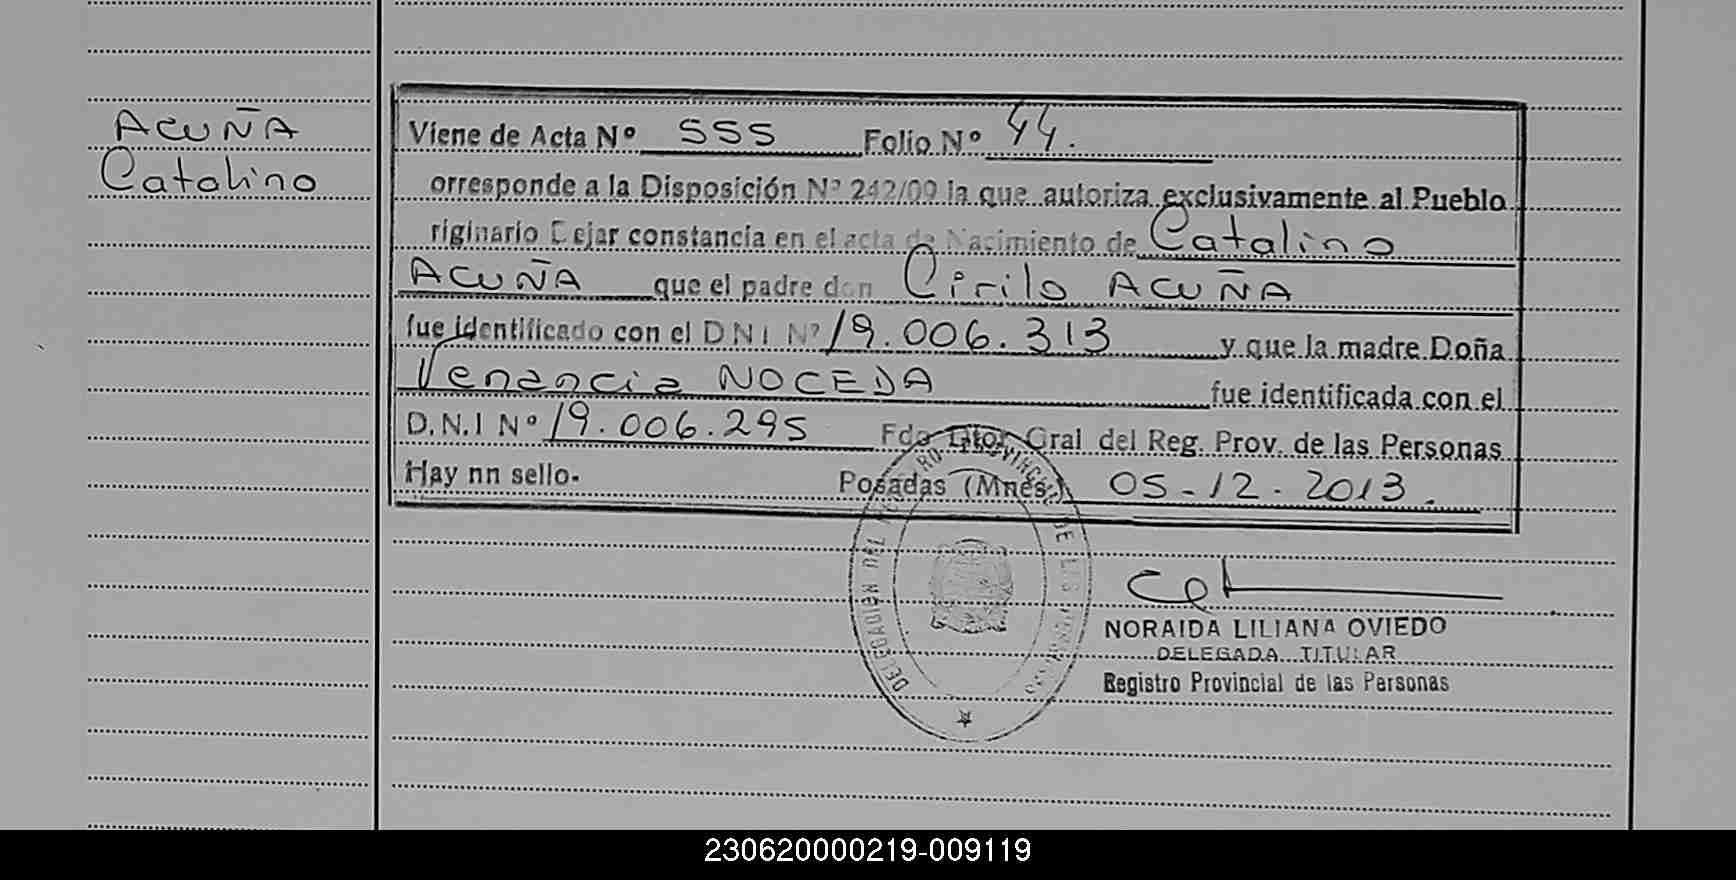 ACUÑA
Catalino
Viene de Acta Nº 555 Folio Nº 44.
orresponde a la Disposición Nº 242/09 la que autoriza exclusivamente al Pueblo
riginario Dejar constancia en el acta de Nacimiento de Catalino
ACUÑA que el padre don Cirilo ACUÑA
fue identificado con el DNI Nº 19.006.313 y que la madre Doña
Venancia NOCEDA fue identificada con el
D.N.I Nº 19.006.295 Fdo Dtor Gral del Reg. Prov. de las Personas
Hay nn sello. Posadas (Mnes.) 05-12-2013.
DELEGACION DEL REGISTRO PROVINCIAL DE LAS PERSONAS
NORAIDA LILIANA OVIEDO
DELEGADA TITULAR
Registro Provincial de las Personas
230620000219-009119